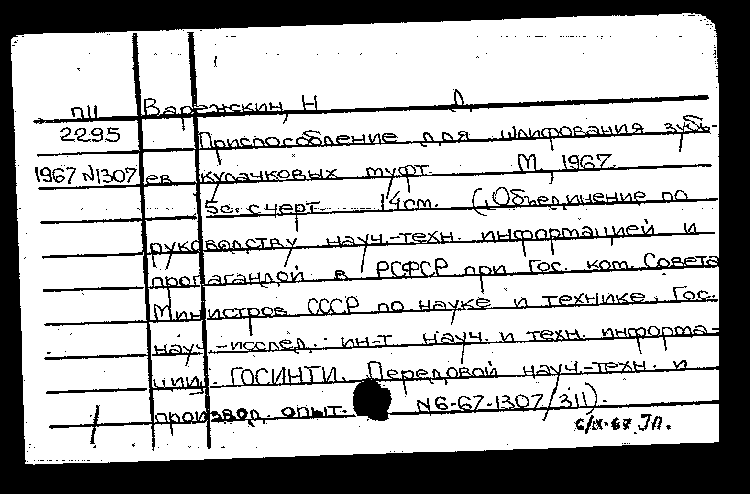 ПII Варежкин, Н Л,
2295 Приспособление для шлифования зубь-
1967 N1307 ев кулачковых муфт. М, 1967.
5с. с черт. 14см. (Объединение по
руководству науч.-техн. информацией и
пропагандой в РСФСР при Гос. ком. Совета
Министров СССР по науке и технике. Гос.
науч.-исслед. ин-т науч. и техн. информа-
ции. ГОСИНТИ. Передовой науч.-техн. и
производ. опыт. N6-67-1307/311).
6/IX-67